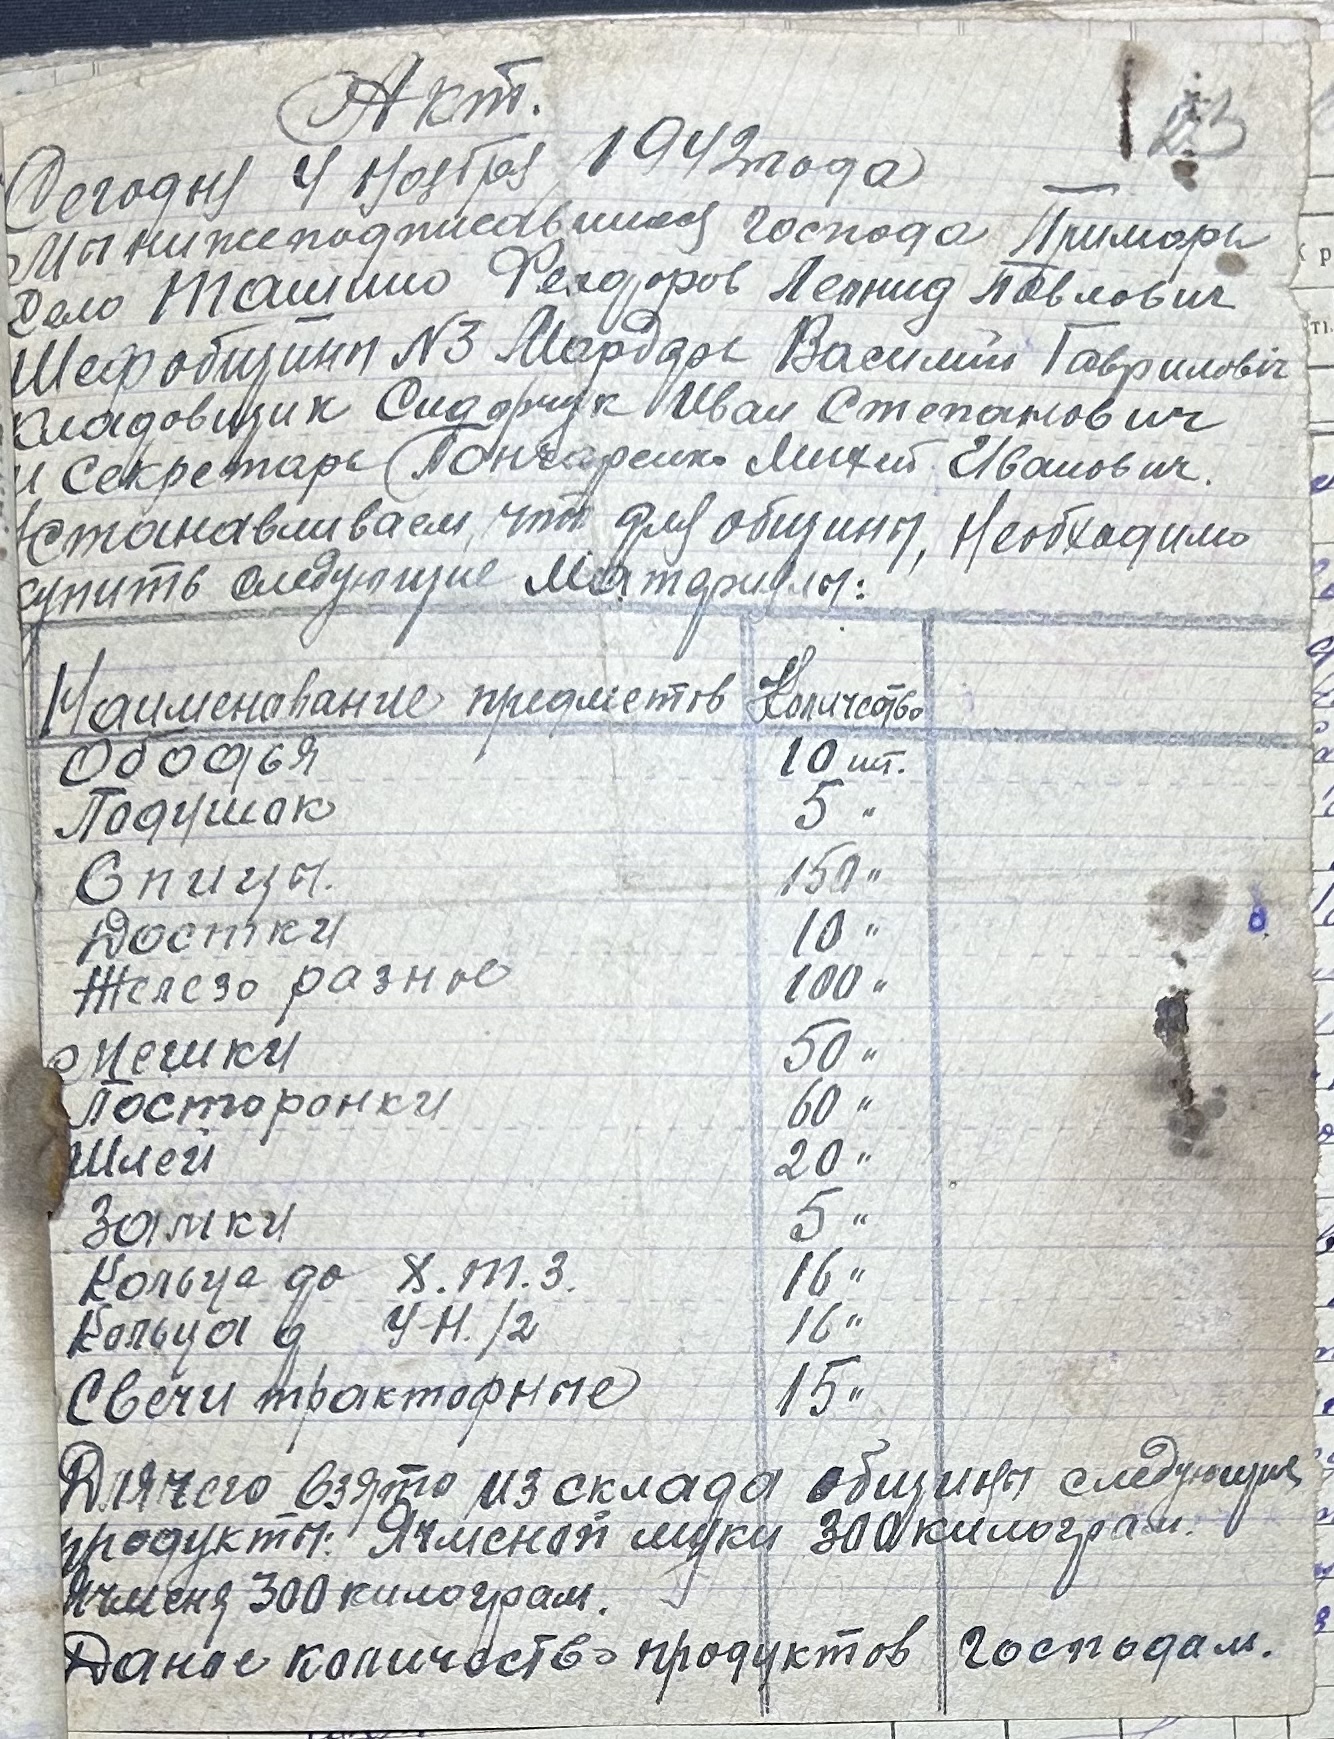 23
Акт.
Сегодня 4 ноября 1942 года
Мы нижеподписавшиеся господа Примарь
село Ташино Феодоров Леонид Павлович
Шеф общины N3 Мардарь Василий Гаврилович
кладовщик Сидорчук Иван Степанович
и секретарь Гончаренко Михей Иванович.
Устанавливаем, что для общины, необходимо
купить следующие Материалы:
Наименование предметов Количество
Ободья 10 шт.
Подушок 5 "
Спицы. 150 "
Достки 10 "
Железо разные 100 "
Мешки 50 "
Посторонки 60 "
Шлей 20 "
Замки 5 "
Кольца до Х.Т.З. 16 "
Кольца д У-Н./2 16 "
Свечи тракторные 15 "
Для чего взято из склада общины следующия
продукты: Ячменой муки 300 килограм.
Ячменя 300 килограм.
Даное количество продуктов господам.